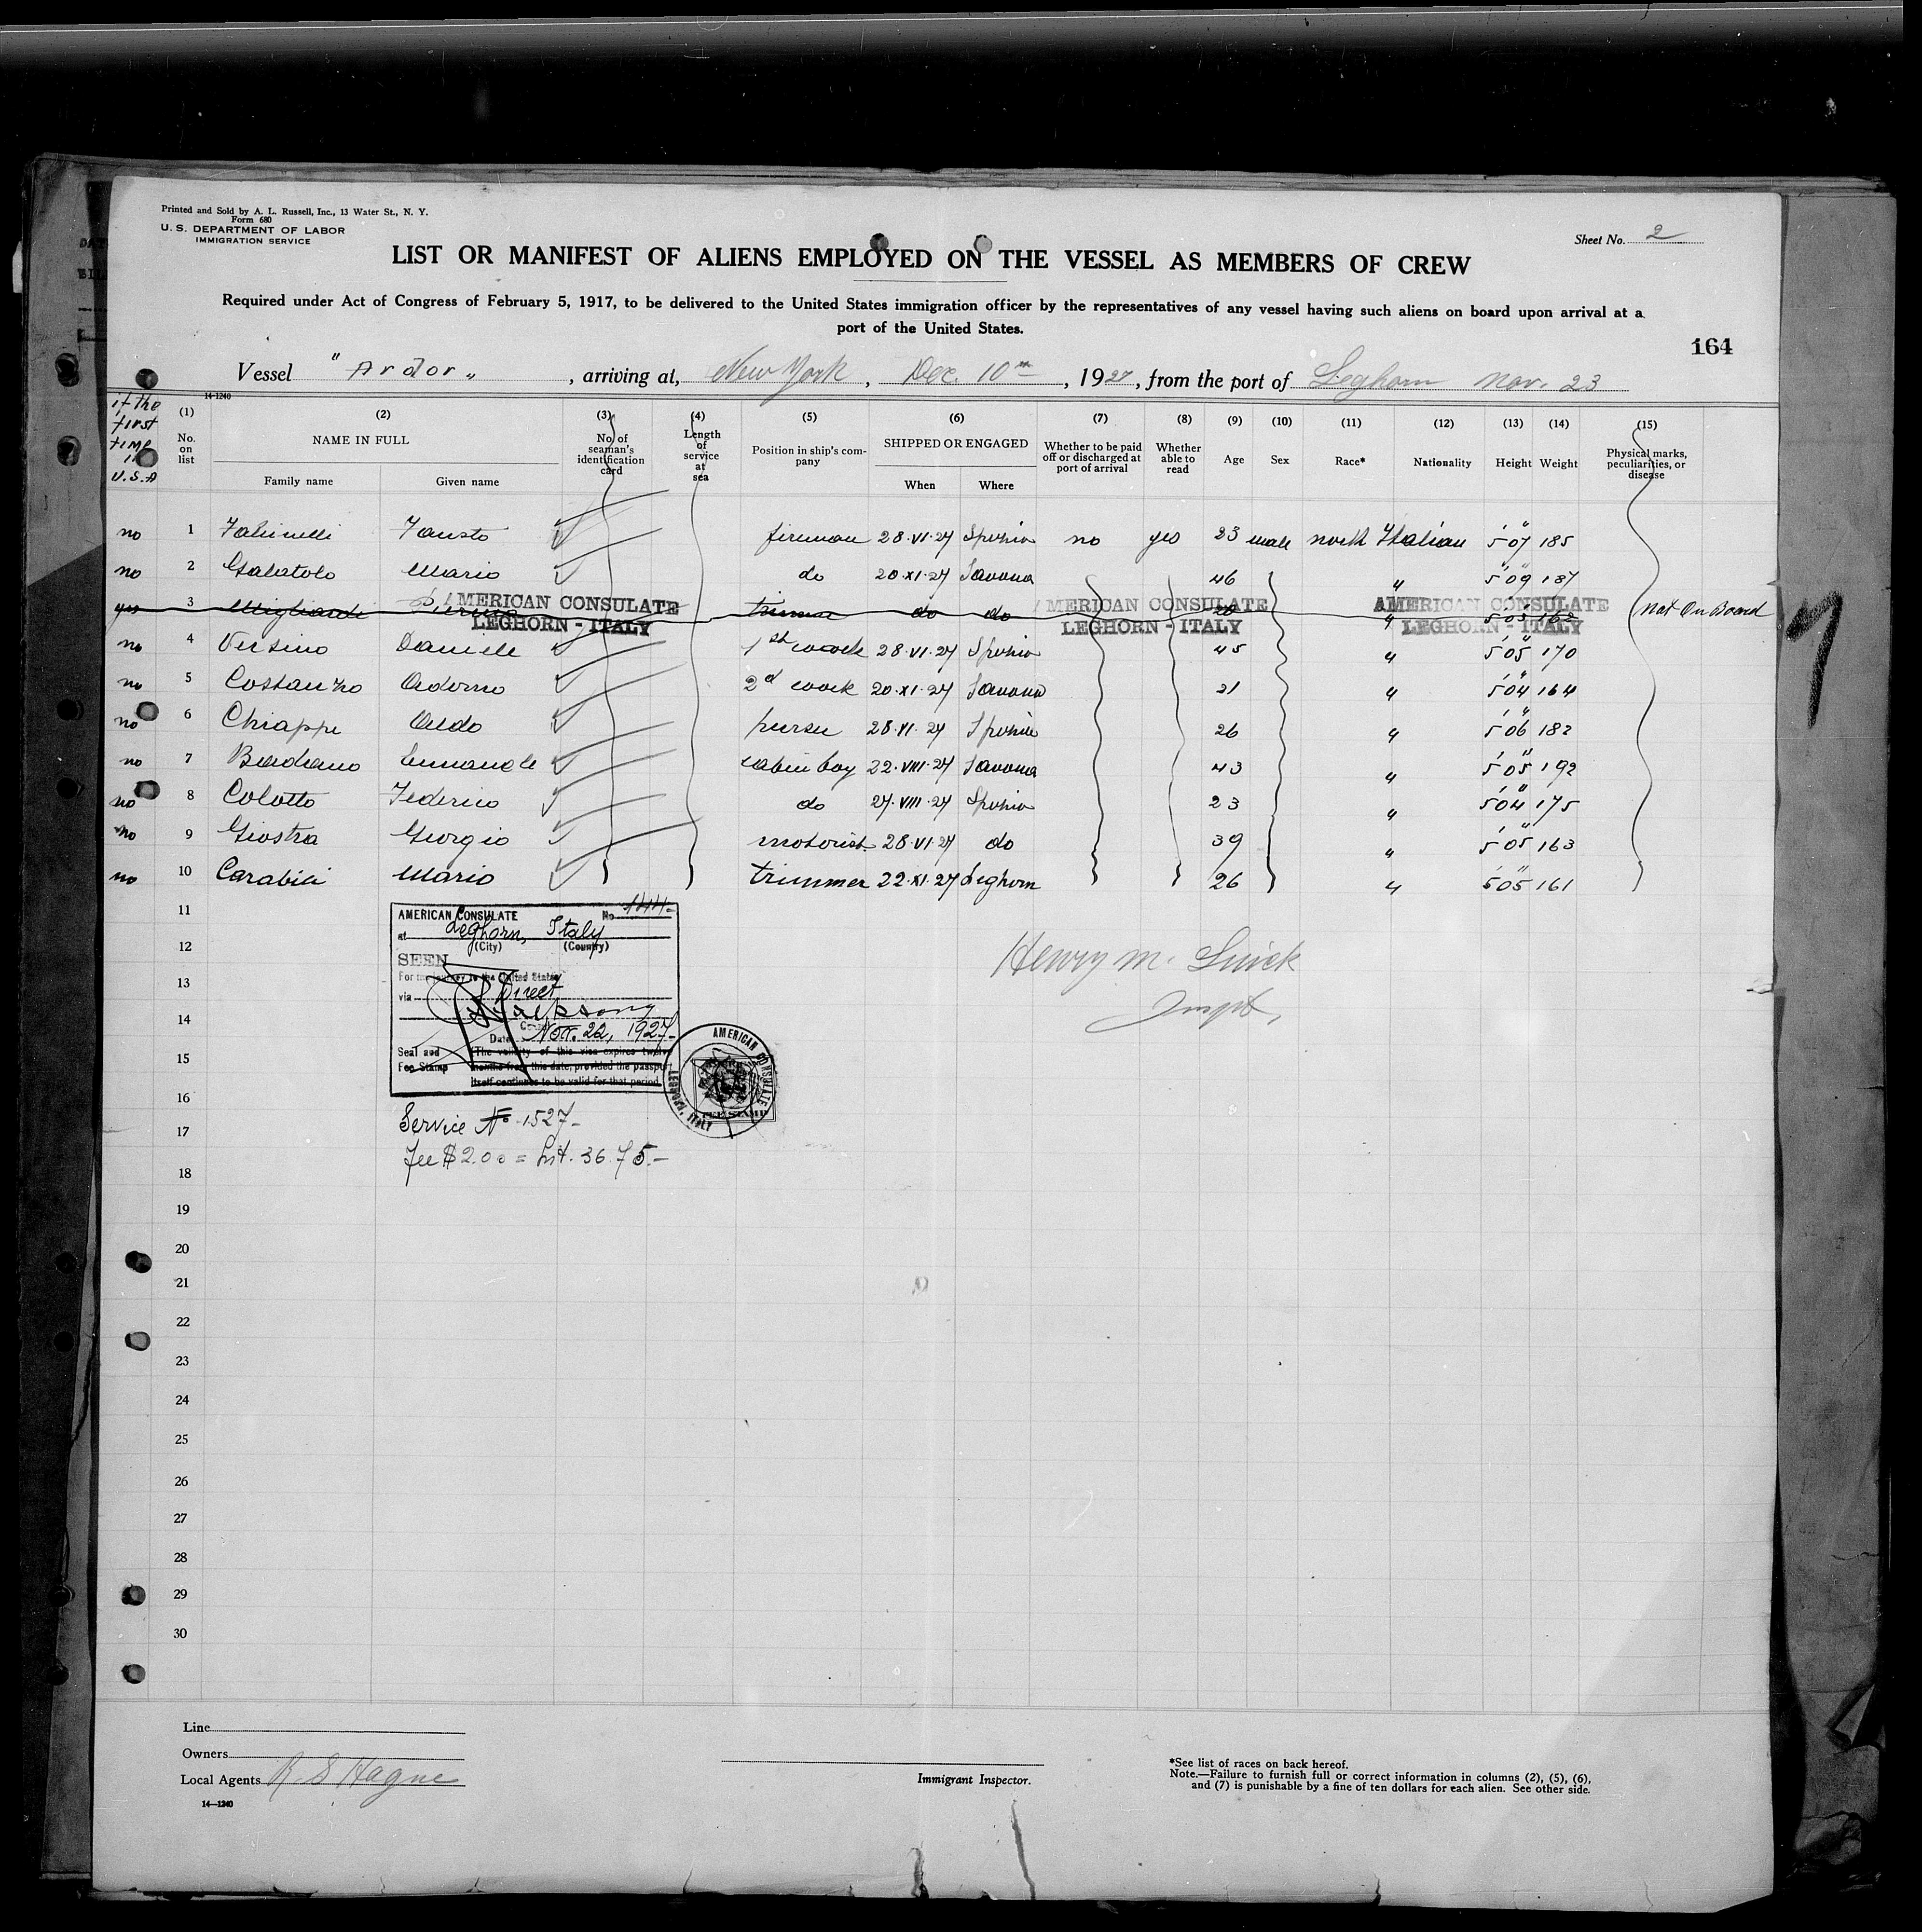 Printed and Sold by A. L. Russell, Inc., 13 Water St., N. Y.
Form 680
U. S. DEPARTMENT OF LABOR
IMMIGRATION SERVICE
Sheet No. 2
LIST OR MANIFEST OF ALIENS EMPLOYED ON THE VESSEL AS MEMBERS OF CREW
Required under Act of Congress of February 5, 1917, to be delivered to the United States immigration officer by the representatives of any vessel having such aliens on board upon arrival at a
port of the United States.
164
Vessel "Ardor", arriving at, New York, Dec. 10th, 1927, from the port of Leghorn Nov. 23
14-1240
if the first time in U.S.A
(1) No. on list
(2) NAME IN FULL
Family name Given name
(3) No. of seaman's identification card
(4) Length of service at sea
(5) Position in ship's company
(6) SHIPPED OR ENGAGED
When Where
(7) Whether to be paid off or discharged at port of arrival
(8) Whether able to read
(9) Age
(10) Sex
(11) Race*
(12) Nationality
(13) Height
(14) Weight
(15) Physical marks, peculiarities, or disease
no 1 Fausto fireman 28.VI.27 no yes 23 male north Italian 5'07" 185
no 2 Galatolo Mario do 20.XI.27 Savona 46 " 5'09" 187
yes 3 trimmer do do " not on Board
AMERICAN CONSULATE AMERICAN CONSULATE AMERICAN CONSULATE
LEGHORN - ITALY LEGHORN - ITALY LEGHORN - ITALY
no 4 Versino Daniele 1st coock 28.VI.27 45 " 5'05" 170
no 5 Costanzo Adorno 2d coock 20.XI.27 Savona 21 " 5'04" 164
no 6 Chiappe Aldo purser 28.VI.27 26 " 5'06" 182
no 7 Emanuele cabin boy 22.VIII.27 Savona 43 " 5'05" 192
no 8 Colotto Federico do 27.VIII.27 23 " 5'04" 175
no 9 Giostra Giorgio motorist 28.VI.27 do 39 " 5'05" 163
no 10 Mario trimmer 22.XI.27 Leghorn 26 " 5'05" 161
11
12
13
14
15
16
17
18
19
20
21
22
23
24
25
26
27
28
29
30
AMERICAN CONSULATE No 144
at Leghorn, Italy
(City) (Country)
SEEN
For the journey to the United States
via Direct
Date Nov. 22, 1927
Seal and
Fee Stamp
(The validity of this visa expires twelve
months from this date, provided the passport
itself continues to be valid for that period
AMERICAN CONSULATE
LEGHORN, ITALY
FEE STAMP
Service No 1527-
Fee $2.00 = Lit. 36.75.-
Henry M.
Inspt,
Line
Owners
Local Agents R S Hague
14—1240
Immigrant Inspector.
*See list of races on back hereof.
Note.—Failure to furnish full or correct information in columns (2), (5), (6),
and (7) is punishable by a fine of ten dollars for each alien. See other side.